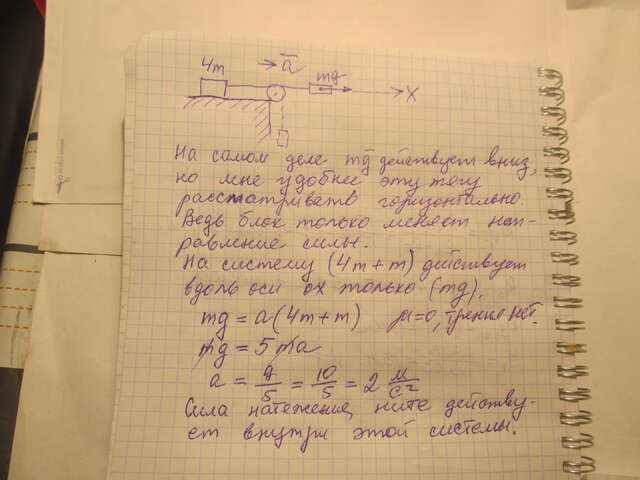 4m
a
mg
X
На самом деле mg действует вниз,
но мне удобнее эту тягу
рассматривать горизонтально.
Ведь блок только меняет нап-
равление силы.
На систему (4m+m) действует
вдоль оси ох только (mg).
mg = a(4m+m) μ=0, трения нет.
mg = 5ma
a = g/5 = 10/5 = 2 м/с²
Сила натяжения нити действу-
ет внутри этой системы.